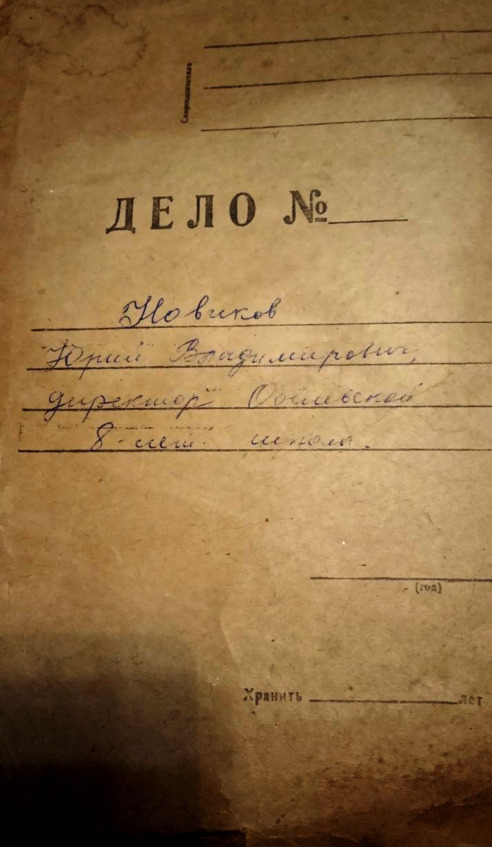 Скоросшиватель
ДЕЛО №
Новиков
Юрий Владимирович,
директор
8-лет. школы.
(год)
Хранить лет